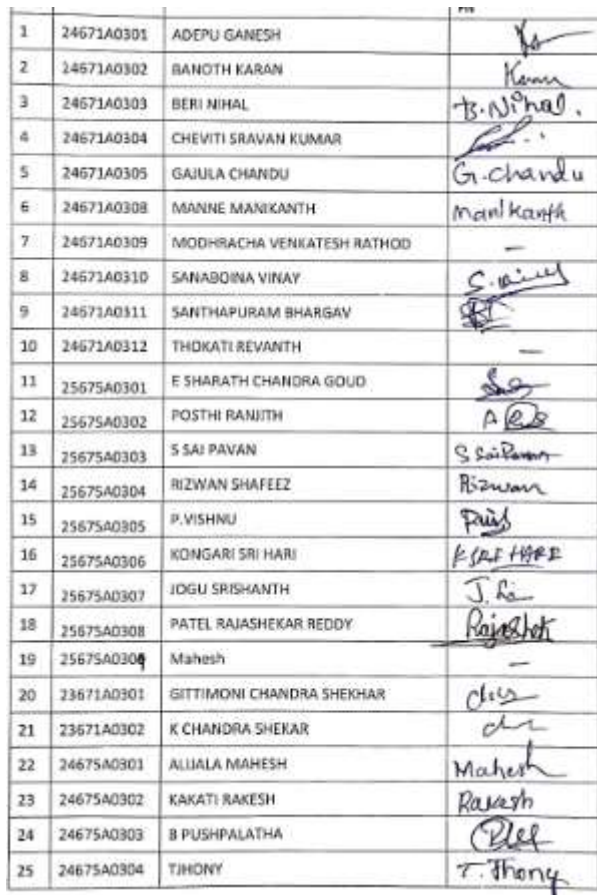 1 24671A0301 ADEPU GANESH
2 24671A0302 BANOTH KARAN Karan
3 24671A0303 BERI NIHAL B.Nihal.
4 24671A0304 CHEVITI SRAVAN KUMAR
5 24671A0305 GAJULA CHANDU G.chandu
6 24671A0308 MANNE MANIKANTH Manikanth
7 24671A0309 MODHRACHA VENKATESH RATHOD —
8 24671A0310 SANABOINA VINAY
9 24671A0311 SANTHAPURAM BHARGAV
10 24671A0312 THOKATI REVANTH —
11 25675A0301 E SHARATH CHANDRA GOUD
12 25675A0302 POSTHI RANJITH
13 25675A0303 S SAI PAVAN S SaiPavan
14 25675A0304 RIZWAN SHAFEEZ Rizwan
15 25675A0305 P.VISHNU
16 25675A0306 KONGARI SRI HARI K SRI HARI
17 25675A0307 JOGU SRISHANTH
18 25675A0308 PATEL RAJASHEKAR REDDY
19 25675A0309 Mahesh —
20 23671A0301 GITTIMONI CHANDRA SHEKHAR
21 23671A0302 K CHANDRA SHEKAR
22 24675A0301 ALIJALA MAHESH Mahesh
23 24675A0302 KAKATI RAKESH Rakesh
24 24675A0303 B PUSHPALATHA
25 24675A0304 TJHONY T.Jhony